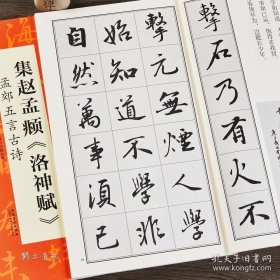 擊石乃有火不
擊元無煙人學
始知道不學非
自然萬事須己
集赵孟頫《洛神赋》
孟郊五言古诗
孔夫子旧书网